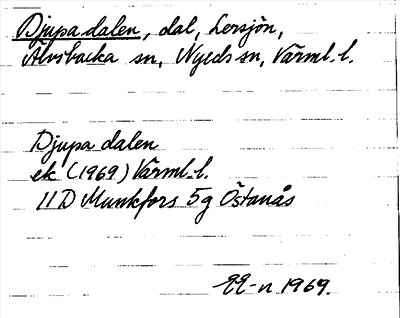 Djupa dalen, dal, Lersjön,
Älvsbacka sn, Nyeds sn, Värml. l.
Djupa dalen
ek (1969) Värml. l.
11D Munkfors 5g Östanås
EE-n 1969.